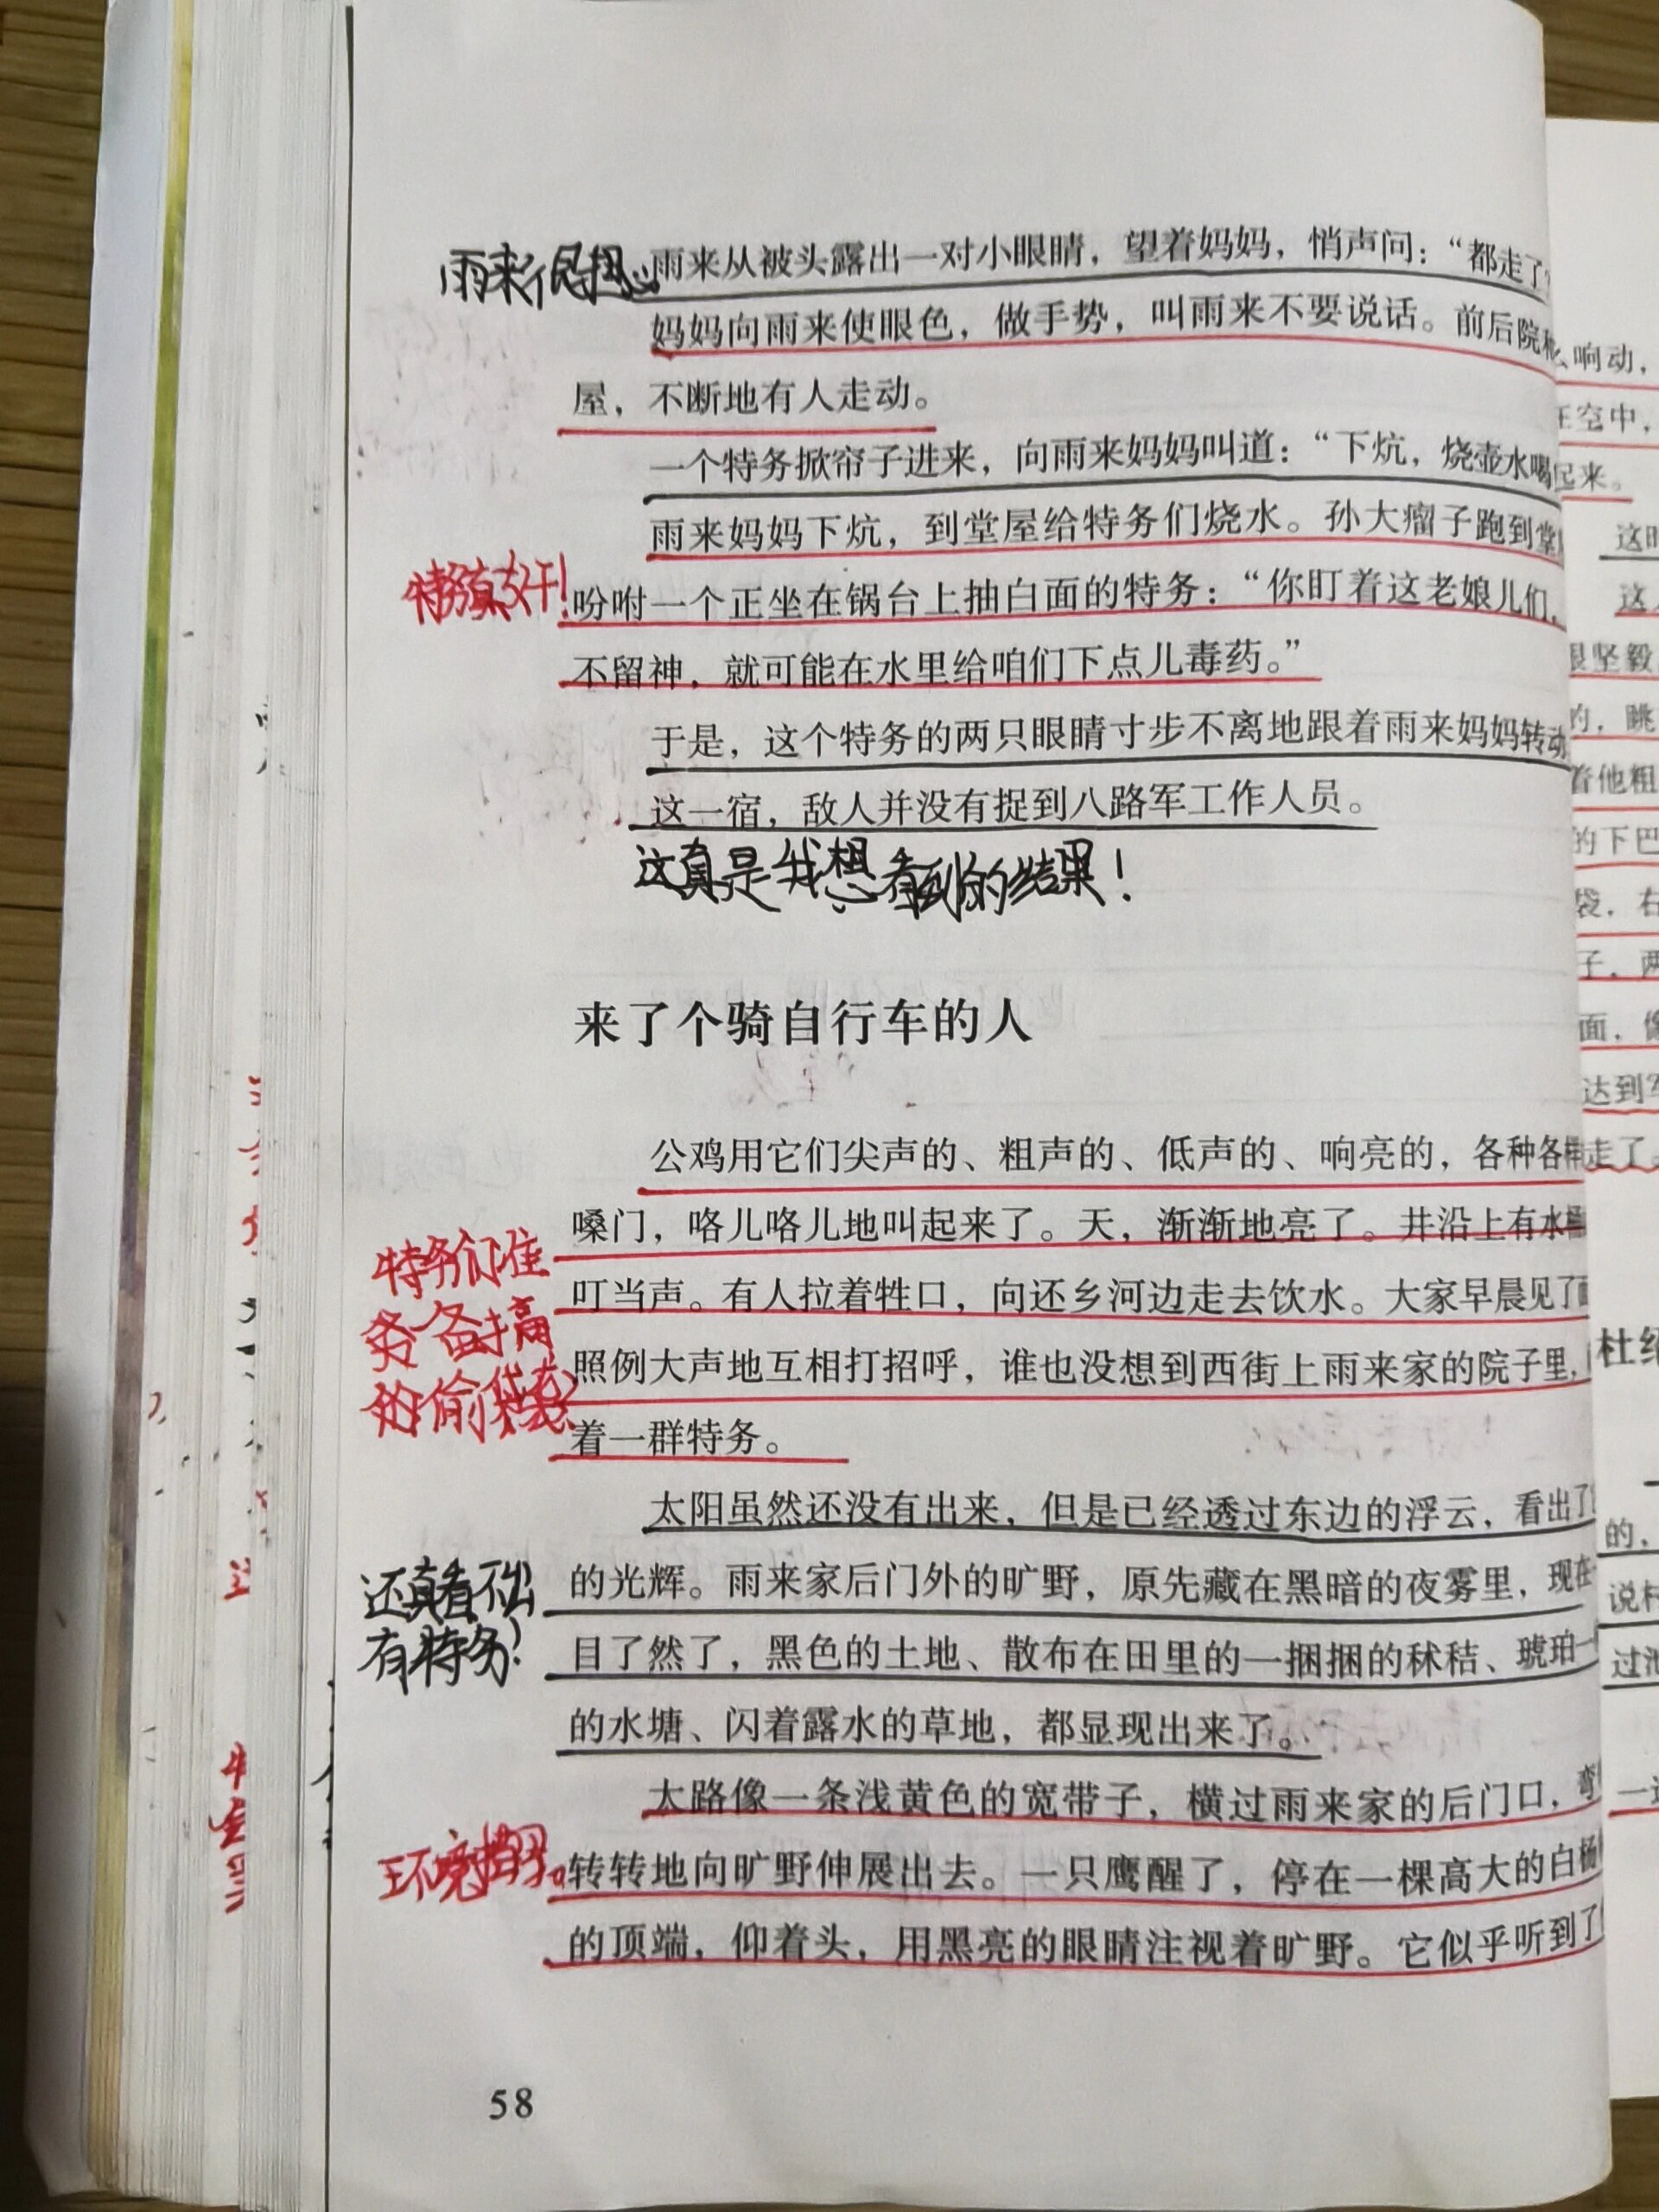 雨来很担心
雨来从被头露出一对小眼睛，望着妈妈，悄声问：“都走了
妈妈向雨来使眼色，做手势，叫雨来不要说话。前后院
屋，不断地有人走动。
一个特务掀帘子进来，向雨来妈妈叫道：“下炕，烧壶水喝
雨来妈妈下炕，到堂屋给特务们烧水。孙大瘤子跑到堂
特务真奸！
吩咐一个正坐在锅台上抽白面的特务：“你盯着这老娘儿们，
不留神，就可能在水里给咱们下点儿毒药。”
于是，这个特务的两只眼睛寸步不离地跟着雨来妈妈转动
这一宿，敌人并没有捉到八路军工作人员。
这真是我想看到的结果！
来了个骑自行车的人
公鸡用它们尖声的、粗声的、低声的、响亮的，各种各样
嗓门，咯儿咯儿地叫起来了。天，渐渐地亮了。井沿上有水桶
特务们准
叮当声。有人拉着牲口，向还乡河边走去饮水。大家早晨见了面
备搞
照例大声地互相打招呼，谁也没想到西街上雨来家的院子里，
偷袭
着一群特务。
太阳虽然还没有出来，但是已经透过东边的浮云，看出了
还真看不出
的光辉。雨来家后门外的旷野，原先藏在黑暗的夜雾里，现在
有特务！
目了然了，黑色的土地、散布在田里的一捆捆的秫秸、琥珀一
的水塘、闪着露水的草地，都显现出来了。
大路像一条浅黄色的宽带子，横过雨来家的后门口，弯
环境描写。
转转地向旷野伸展出去。一只鹰醒了，停在一棵高大的白杨
的顶端，仰着头，用黑亮的眼睛注视着旷野。它似乎听到了
58
响动，
在空中，
起来。
这时
这
坚毅
的，眺
着他粗
的下巴
袋，右
子，两
面，像
达到军
走了
杜绍
的，
说村
过
一